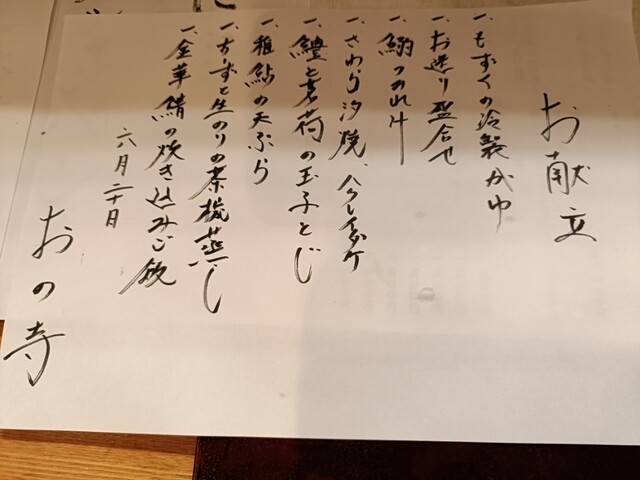 お献立
一、もずくの冷製かゆ
一、お造り盛合せ
一、鰯つみれ汁
一、さわら汐焼、ハクレイダケ
一、鱧と茗荷の玉子とじ
一、稚鮎の天ぷら
一、チーズと生のりの茶椀蒸し
一、金華鯖の炊き込みご飯
六月二十日
おの寺